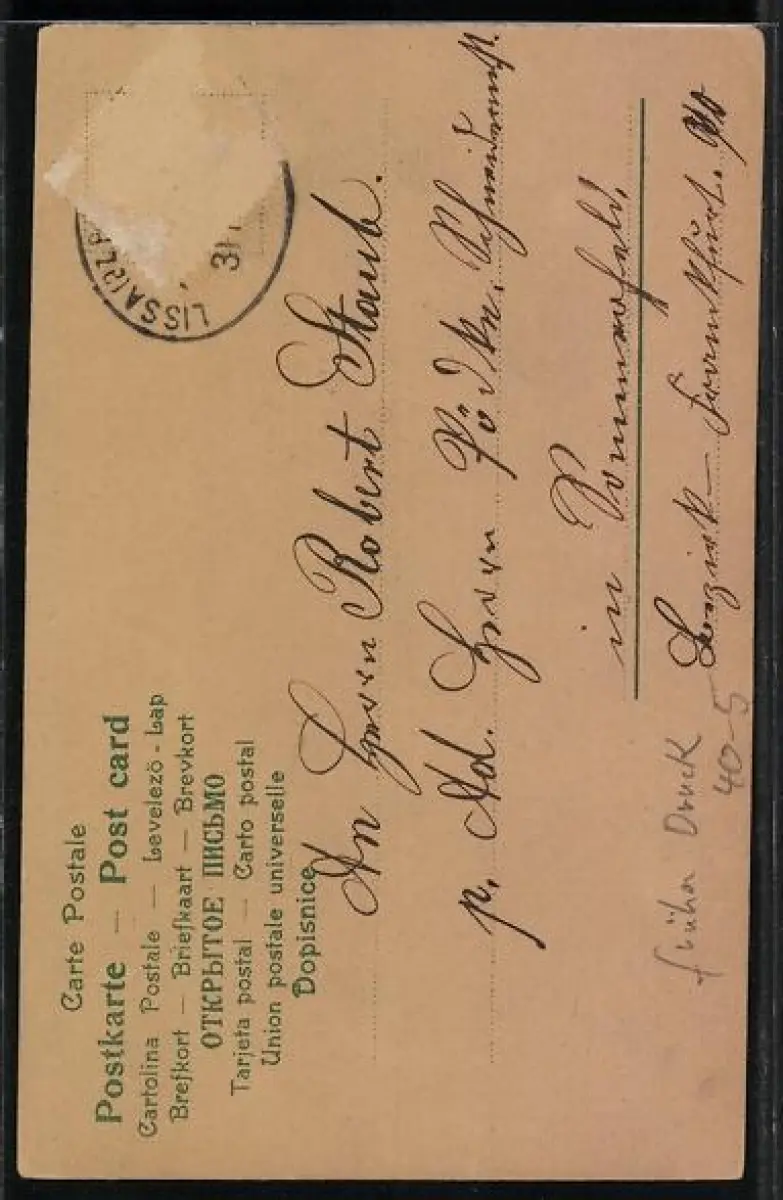 Carte Postale
Postkarte — Post card
Cartolina Postale — Levelezö-Lap
Brefkort — Briefkaart — Brevkort
ОТКРЫТОЕ ПИСЬМО
Tarjeta postal — Carto postal
Union postale universelle
Dopisnice
LISSA (BZ. P
31
An Herrn Robert Staub.
p. Ad. Herrn
in Sommerfeld,
Bezirk Frankfurt. 
früher Druck
40-5